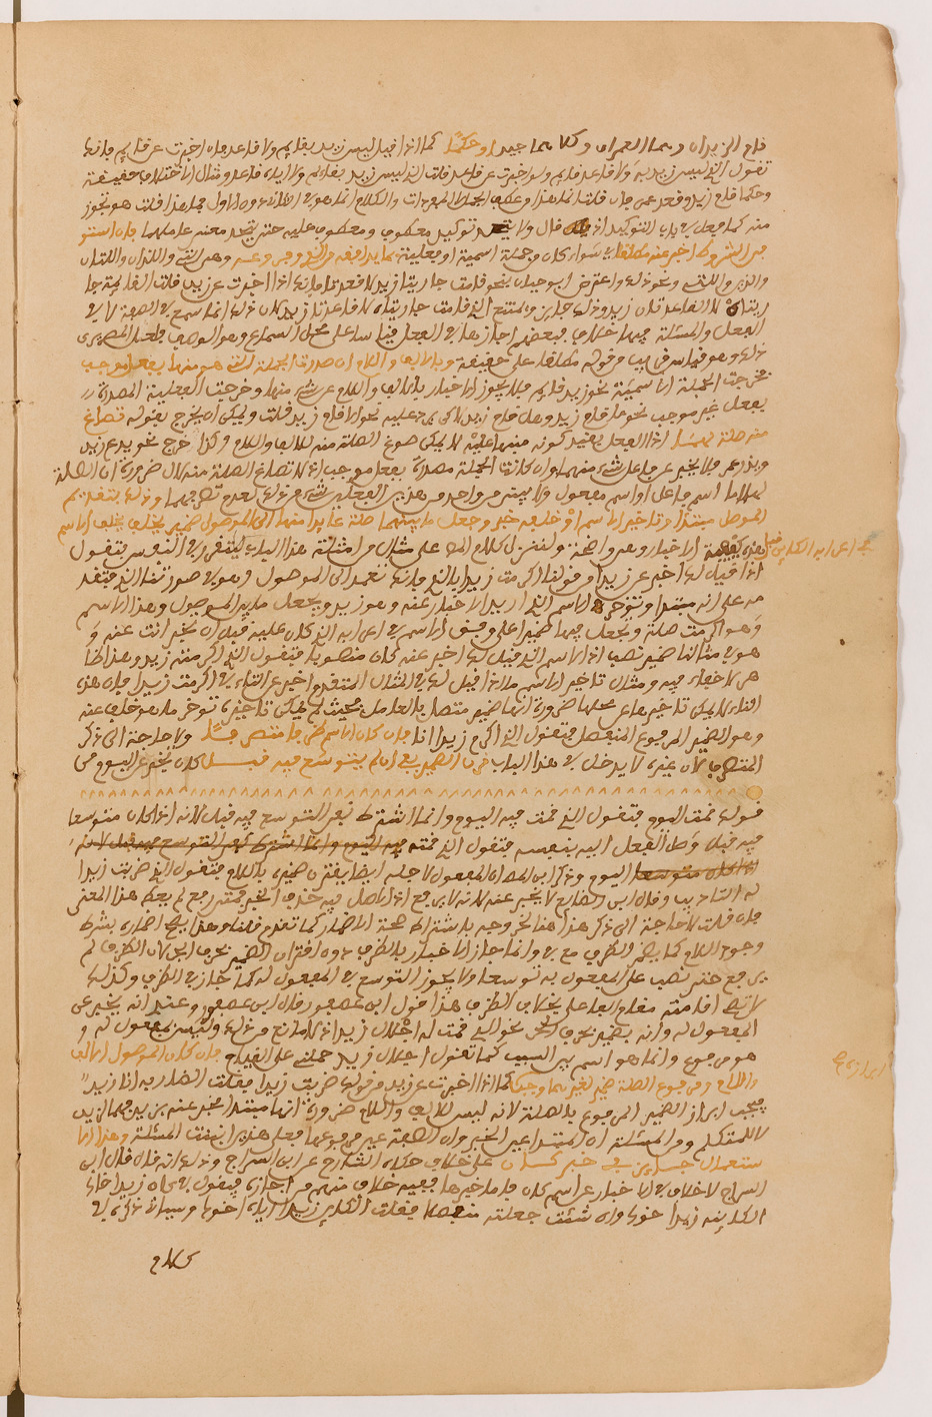 قام الزيدان وهما العمران وكلاهما جيد او حكما كما اذا قيل ليس زيد بقايم ولا قاعد فان اخبرت عن قايم فانك
تقول الذي ليس زيد به ولا قاعد قايم ولو اخبرت عن قاعد قلت الذي ليس زيد بقايم ولا اياه قاعد ومثال الاختلاف حقيقة
وحكما قام زيد وقعد عمرو فان قلت انما هذا وعطف الجمل لا المفردات والكلام انما هو في الثاني دون الاول فما هذا قلت هو تجوز
منه كما فعل في باب التوكيد اذ قال ولا يتحد توكيد معطوف ومعطوف عليه حتى يتحد معنى عاملهما فان استو
فى الشروط اخبر عنه مطلقا اي سواء كان في جملة اسمية او فعلية بما يرافقه من الذي وفروعه وهي التي واللذان واللتان
والذين واللاتي ونحو ذلك واعترض ابو حيان بنحو قامت جاريتا زيد لا قعدتا فانه اذا اخبرت عن زيد قلت الذي قامت جا
ريتاه لا القاعدتان زيد وذلك جايز ويمتنع الذي قامت جاريتاه لا قاعدتا زيد لان ذلك انما سمع في الصفة لا في
الفعل والمسئلة فيها خلاف فبعضهم اجازها في الفعل قياسا على محل السماع وهو الوصف فلعل المص يرى
ذلك وهو قياس قريب من قوله مطلقا على حقيقة وبالالف واللام ان صدرت الجملة التي هو منها بفعل موجب
فخرجت الجملة الاسمية نحو زيد قايم فلا يجوز الاخبار بالالف واللام عن شيء منها وخرجت الفعلية المصدرة
بفعل غير موجب نحو ما قام زيد وهل قام زيد
منه صلة لهما اذ الفعل يفيد كونه منها علة لا يمكن صوغ الصلة منه للالف واللام وكذا خرج نحو يدع زيد
ويذر عمرو فلا يخبر عن فاعل شيء منهما وان كانت الجملة مصدرة بفعل موجب اذ لا تصاغ الصلة منه لان ضرورة ان الصلة
لها اما اسم فاعل او اسم مفعول ولا يبنى من واحد من هذين الفعلين شيء من ذلك لعدم تصرفهما وذلك بتقديم
الموصول مبتدا وتاخير الاسم او خلفه خبر وجعل ما بينهما صلة عايدا منها الى الموصول ضمير يخلف يخلف الاسم
في اعرابه الكاين قبل
هذه كيفية الاخبار وهي واضحة ولننزل كلام المص على مثال من امثلة هذا الباب ليتضح في النفس فنقول
اذا قيل لك اخبر عن زيد من قولنا اكرمت زيدا بالذي فانك تعمد الى الموصول وهو في صورتنا الذي فتقد
مه على انه مبتدا وتؤخر الاسم الذي اريد الاخبار عنه وهو زيد وتجعل ما بين الموصول وهذا الاسم
وهو اكرمت صلة وتجعل فيها ضميرا على وفق الاسم في اعرابه الذي كان عليه قبل ان تخبر انت عنه و
هو في مثالنا ضمير نصب اذ الاسم الذي قيل لك اخبر عنه كان منصوبا فتقول الذي اكرمته زيد وهذا ظا
هر لا خفاء فيه ومثال تاخير الاسم ما اذا قيل لك في المثال المتقدم اخبر عن التاء في اكرمت زيدا فان هذه
التاء لا يمكن تاخيرها عن محلها ضرورة انها ضمير متصل بالعامل فحيث لم يمكن تاخيره تؤخر ما هو خلف عنه
وهو الضمير المرفوع المنفصل فتقول الذي اكرم زيدا انا فان كان الاسم ظرفا متصرفا ولا حاجة الى ذكر
المتصرف لان غيره لا يدخل في هذا الباب قرن الضمير بفي ان لم يتوسع فيه قبل كان يخبر عن اليوم من
قولك قمت اليوم فتقول الذي قمت فيه اليوم وانما اشترط نفي التوسع فيه قبل لانه اذا كان متوسعا
فيه قبل وصل الفعل اليه بنفسه فتقول الذي قمته فيه اليوم وانما اشترط نفي التوسع فيه قبل لانه
اذا كان متوسعا اليوم وذكر ابن المص ان المفعول لاجله ايضا يقترن ضميره باللام فتقول الذي ضربت زيدا
له التاديب وقال ابن الضايع لا يخبر عنه
فان قلت لا حاجة الى ذكر هذا هنا لخروجه باشتراط صحة الاضمار كما تقدم قلنا هذا يصح اضماره بشرط
وجود اللام كما يضمر الظرف مع في وانما جاز الاخبار بالظرف دون اقتران الضمير بحرف الجر لان الظرف لم
يرفع حتى نصب على المفعول به توسعا ولا يجوز التوسع في المفعول له كما جاز في الظرف وكذلك
لا تقل اقامته مقام الفاعل بخلاف الظرف هذا قول ابن عصفور قال ابن عصفور وعندي انه يخبر عن
المفعول له وانه يضمر بحرف الجر نحو الذي قمت له اجلال زيد اذ لا مانع من ذلك وليس بمفعول له و
هو مرفوع وانما هو اسم بين السبب كما تقول اجلال زيد حملني على القيام فان كان الموصول الالف
واللام ومرفوع الصلة ضمير لغيرهما وجب كما اذا اخبرت عن زيد من قولك ضربت زيدا فقلت الضاربه انا زيد
ابراز ح
فيجب ابراز الضمير المرفوع بالصلة لانه ليس للالف واللام ضرورة انها مبتدا مخبر عنه بزيد فهما لزيد
لا للمتكلم ومن المسئلة ان المبتدا عين الخبر وان الصفة غير مرفوعها فعلى هذين انبنت المسئلة وهذا الا
ستعمال جساير في خبر كان على خلاف حكاه الشارح عن ابن السراج وذلك انه قال قال ابن
السراج لا خلاف في الاخبار عن اسم كان فاما خبرها ففيه خلاف منهم من اجازه فيقول في كان زيد اخاك
الكاينه زيد اخوك وان شئت جعلته منفصلا فقلت الكاين زيد اياه اخوك وسياتي ذكره في
كلام